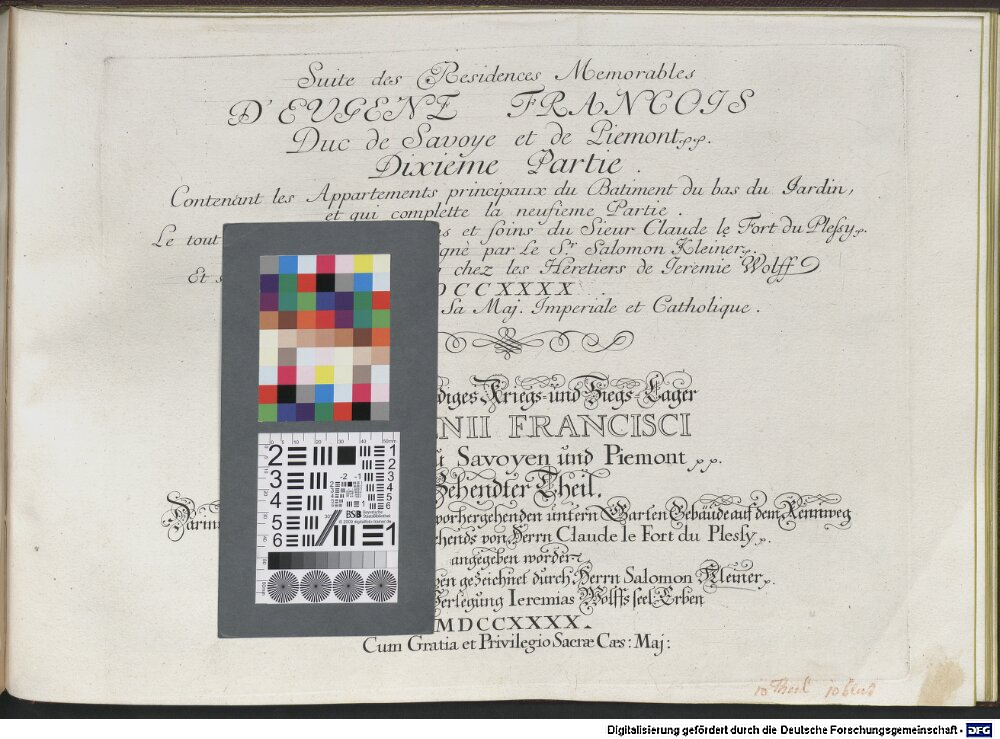 Suite des Residences Memorables
D'EVGENE FRANCOIS
Duc de Savoye et de Piemont p.p.
Dixiême Partie .
Contenant les Appartements principaux du Batiment du bas du Jardin,
et qui complette la neufieme Partie .
Le tout es et soins du Sieur Claude le Fort du Plessy p.
gnè par Le Sr Salomon Kleiner p.
Et s chez les Heretiers de Ieremie Wolff
DCCXXXX
Sa Maj. Imperiale et Catholique .
diges Kriegs- und Siegs-Lager
NII FRANCISCI
ü Savoyen und Piemont p.p.
Zehendter Theil.
vorhergehenden untern Garten Gebäude auf dem Rennweg
ehends von Herrn Claude le Fort du Plessy p.
angegeben worden
en gezeichnet durch Herrn Salomon Kleiner p.
erlegung Ieremias Wolffs seel. Erben
MDCCXXXX.
Cum Gratia et Privilegio Sacræ Cæs: Maj:
10 Theil 10 blat
0 5 10 20 30 40 50mm
2 3 4 5 6
1 2 3 4 5 6
-2 -1
BSB Bayerische Staatsbibliothek
1
Digitalisierung gefördert durch die Deutsche Forschungsgemeinschaft - DFG